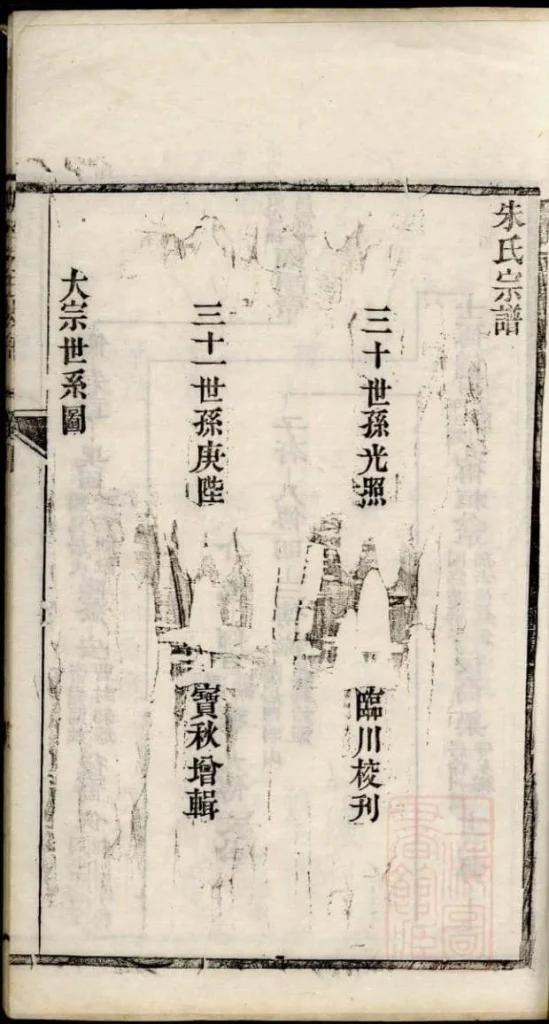 朱氏宗譜
三十世孫光照 臨川校刊
三十一世孫庚陛 寶秋增輯
大宗世系圖